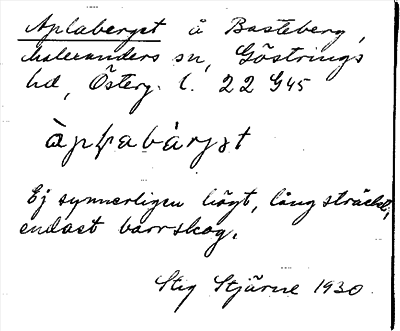 Aplaberget å Basteberg,
Malexanders sn, Göstrings
hd, Österg. l. 22 G45
àpḷabàrjət
Ej synnerligen högt, långsträckt,
endast barrskog.
Stig Stjärne 1930